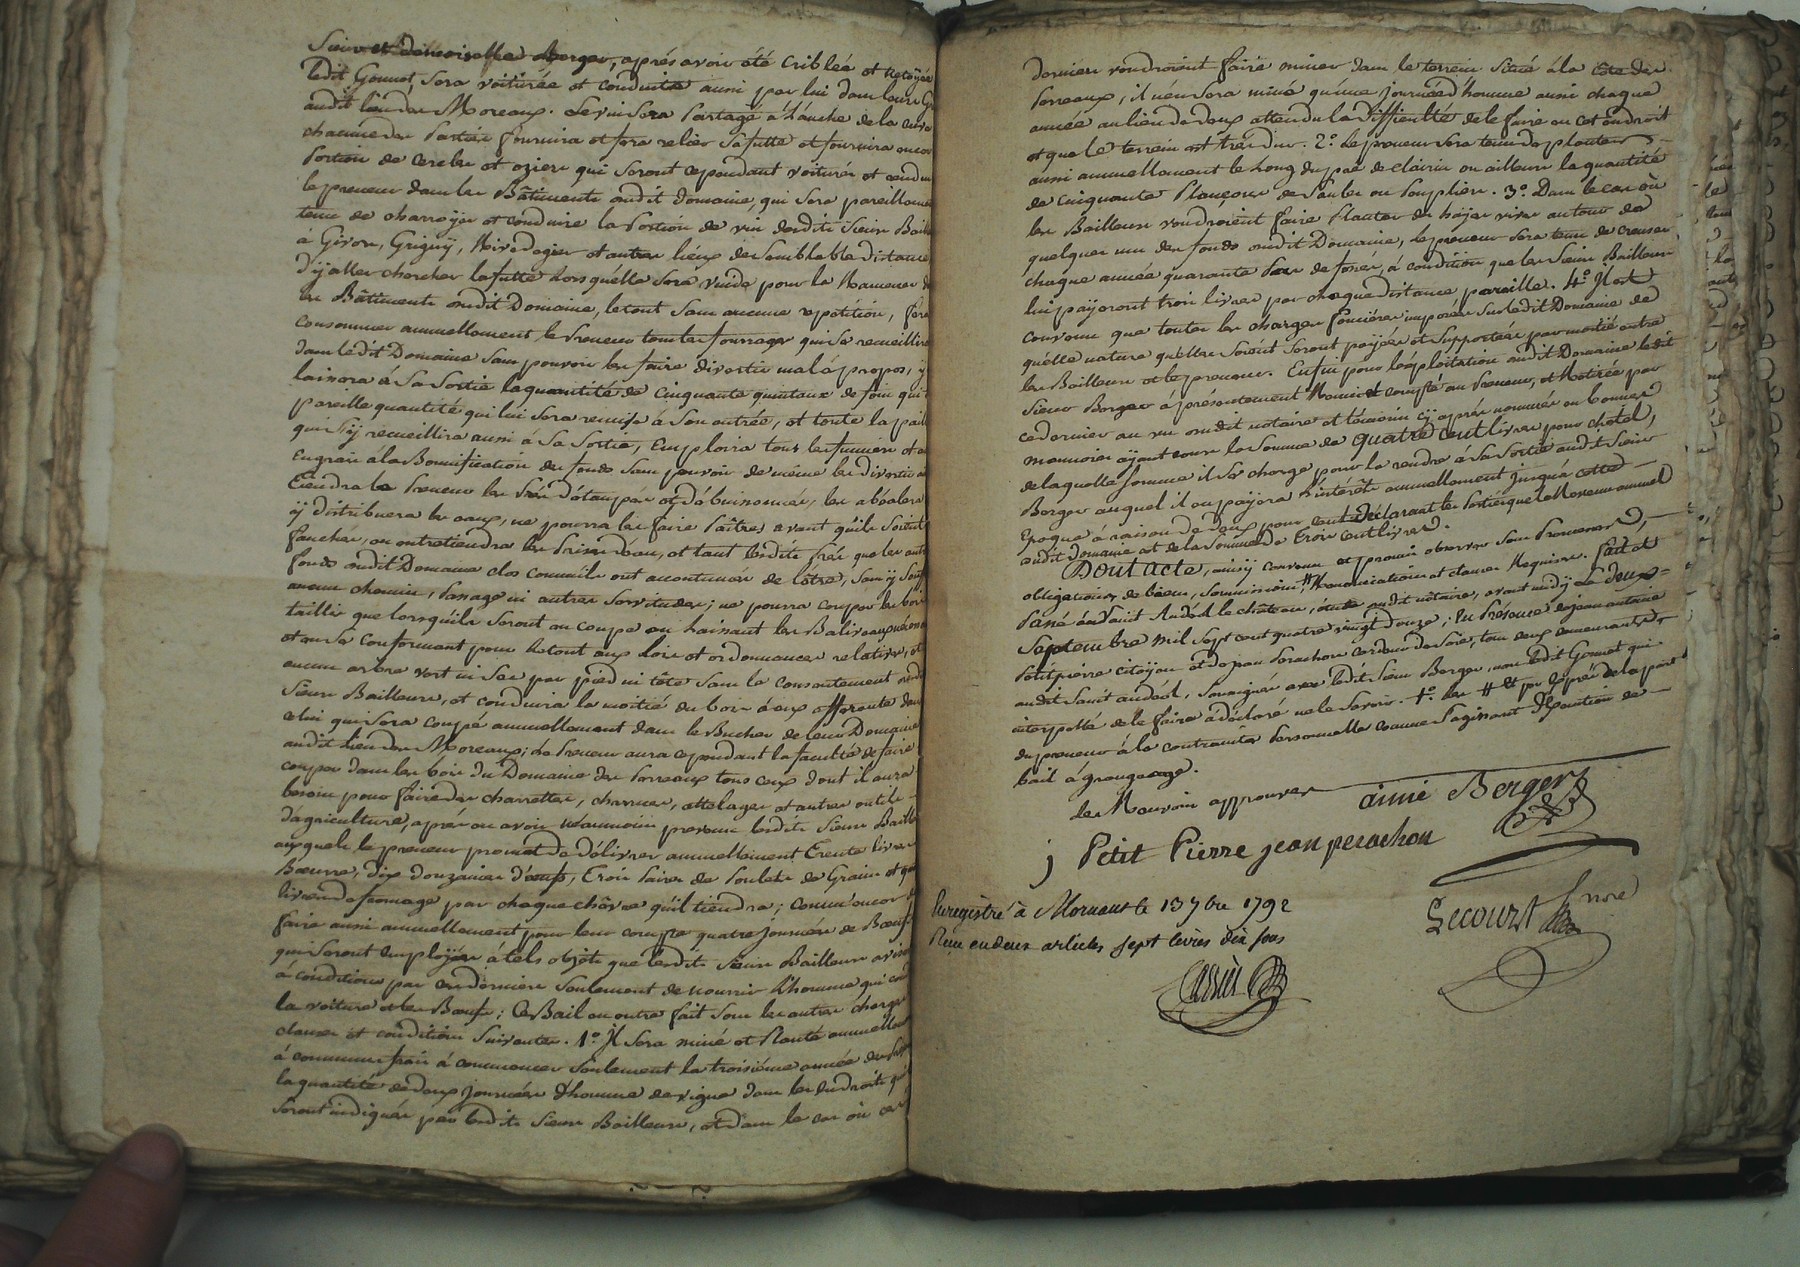 Sieur et demoiselle Berger, après avoir été criblée et netoyée
ledit Gounot, sera voiturée et conduite aussi par lui dans leurs
audit lieu des Moreaux. Le vin sera partagé à l'anche de la cuve
chacune des parties fournira et fera relier sa futte et fournira encor
portion de cercles et oziers qui seront cependant voiturés et conduits
le preneur dans les Bâtiments audit domaine, qui sera pareillement
tenu de charroyer et conduire la portion de vin desdits Sieurs Baill
à Givors, Grigny, Rivedegier et autres lieux de semblable distance
d'y aller chercher la futte lorsquelle sera vuide pour la Ramener d
les Bâtiments audit Domaine, le tout sans aucune repétition, fera
consommer annuellement le preneur tous les fourrages qui se recueilliro
dans ledit Domaine sans pouvoir les faire divertir mal à propos, y
laissera à sa sortie la quantité de Cinquante quintaux de foin qui
pareille quantité qui lui sera remise à son entrée, et toute la paille
qui s'y recueillira aussi à sa sortie, Emploira tous les fumiers et
Engrais à la Bonnification des fonds sans pouvoir de même les divertir
Tiendra le Preneur les prés détaupés et débuissonnés, les abéalera
y distribuera les eaux, ne pourra les faire paîtres avant qu'ils soient
fauchés, en entretiendra les prises d'eau, et tant lesdits prés que les autres
fonds audit Domaine clos comm'ils ont accoutumés de l'être, sans y souffrir
aucun chemin, passage ni autres servitudes; ne pourra couper les bois
taillis que lorsqu'ils seront en coupe en laissant les Baliveaux nécess
et en se conformant pour le tout aux loix et ordonnances relatives, et
aucun arbre vert ni sec par pied ni tête sans le consentement desdits
Sieurs Bailleurs, et conduira la moitié du bois à eux afferente dans
celui qui sera coupé annuellement dans le Bucher de leur Domaine
audit lieu des Moreaux; Le Preneur aura cependant la faculté de faire
couper dans les bois du Domaine des Porreaux tous ceux dont il aura
besoin pour faire des charrettes, charrues, attelages et autres outils
d'agriculture, après en avoir néanmoins prevenu lesdits Sieurs Baill
auxquels le preneur promet de délivrer annuellement Trente livres
Beurre, dix douzaines d'œufs, Trois paires de Poulets de Grains et
livres de fromage par chaque chêvre qu'il tiendra; comm'encor
faire aussi annuellement pour leur compte quatre journées de Bœufs
qui seront employées à tels objets que lesdits Sieurs Bailleurs avise
à condition par ces derniers seulement de nourrir l'homme qui
la voiture et les Bœufs; Ce Bail en outre fait sous les autres charges
clauses et conditions suivantes. 1° Il sera miné et Planté annuellem
à communs frais à commencer seulement la troisième année du
la quantité de deux journées d'homme de vigne dans les endroits qui
seront indiqués par lesdits Sieurs Bailleurs, et dans le cas où ces
derniers voudroient faire miner dans le terrein situé à la côte des
Porreaux, il n'en sera miné qu'une journée d'homme aussi chaque
année au lieu de deux attendu la difficulté de le faire en cet endroit
et que le terrein est très dur. 2° Le preneur sera tenu de planter
aussi annuellement le long du pré de clairin ou ailleurs la quantité
de cinquante Plançons de saules ou Pouplier. 3° Dans le cas où
les Bailleurs voudroient faire planter des hayes vives autour de
quelques uns des fonds audit Domaine, le preneur sera tenu de creuser
chaque année quarante pas de fossés, à condition que les Sieurs Bailleurs
lui payeront trois livres par chaque distance pareille. 4° Il est
convenu que toutes les charges foncières imposées sur ledit Domaine de
quelle nature qu'elles soient seront payées et supportées par moitié entre
les Bailleurs et le preneur. Enfin pour l'exploitation audit Domaine ledit
Sieur Berger a présentement Remis et compté au preneur, et Retirée par
ce dernier au vu audit notaire et témoins cy après nommés en bonnes
monnoies ayant cours la somme de quatre cent livres pour cheptel,
de laquelle somme il se charge pour la rendre à sa sortie audit Sieur
Berger auquel il en payera l'intérêt annuellement jusqu'à cette
Epoque à raison de deux pour cent Déclarant les parties que le Revenu annuel
audit Domaine est de la somme de Trois cent livres.
Dont acte, ainsy convenu et promis observer sans Procureur,
obligations de biens, soumissions, # Renonciations et clauses Requises. fait et
Passé audit Saint Andéol le château, étude audit notaire, avant midy Le deux
Septembre mil sept cent quatre vingt douze, En Présence de jean antoine
Petitpierre citoyen et de jean Perachon cardeur de soie, tous deux demeurants
audit Saint andéol, soussignés avec ledit Sieur Berger, non ledit Gounot qui
interpellé de le faire a déclaré ne le savoir. de la part
du preneur à la contrainte personnelle comme s'agissant D'portion de
bail à grangeage.
les Renvois approuvés
aimé Berger
j Petit Pierre jean perachon
Lecourt nre
Enregistré à Mornant le 13 7bre 1792
Reçu en deux articles sept livres dix sous